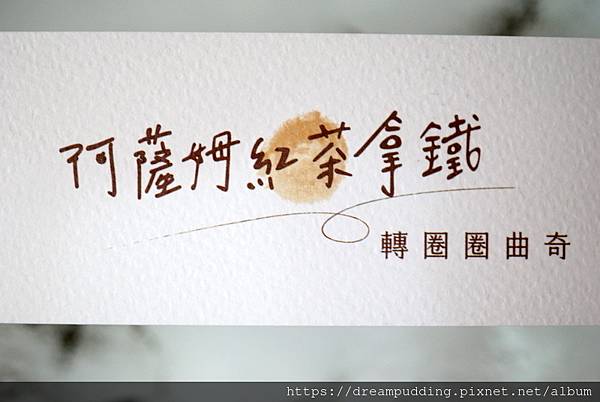 阿薩姆紅茶拿鐵
轉圈圈曲奇
https://dreampudding.pixnet.net/album